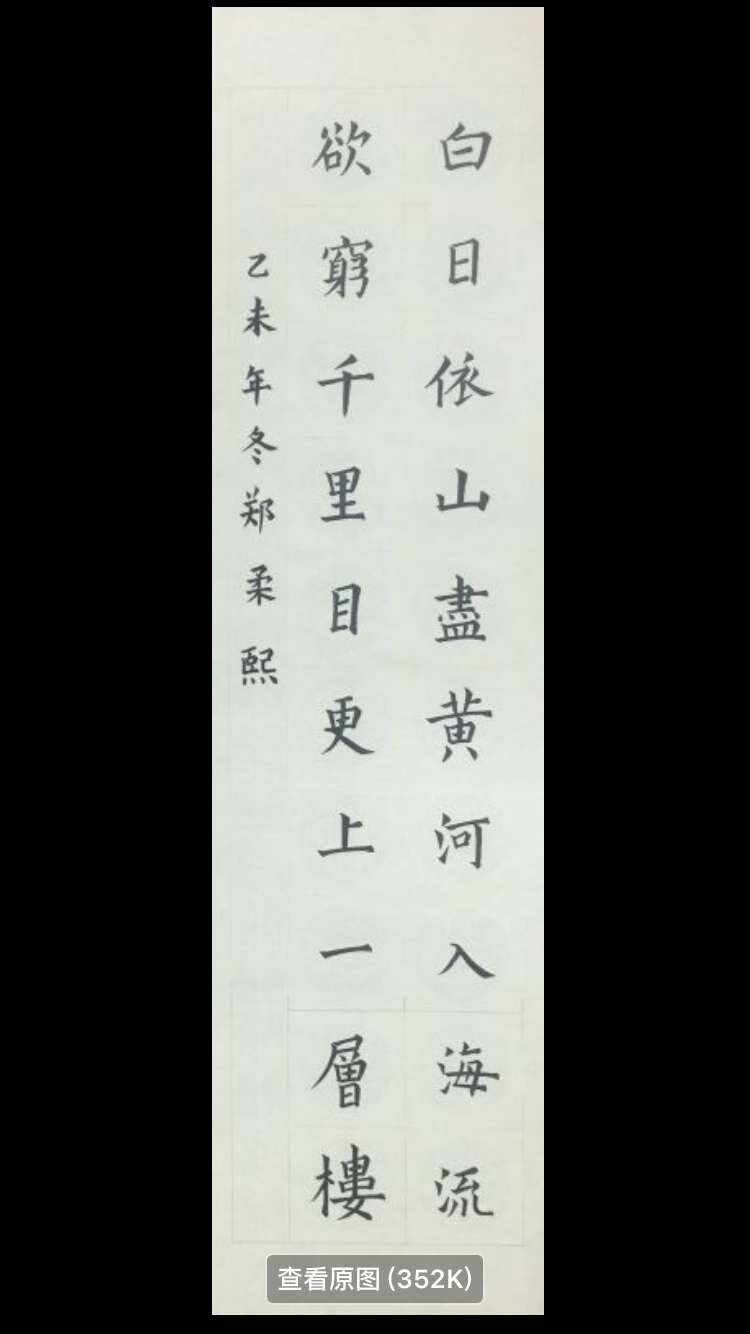 白日依山盡黄河入海流
欲窮千里目更上一層樓
乙未年冬郑柔熙
查看原图 (352K)